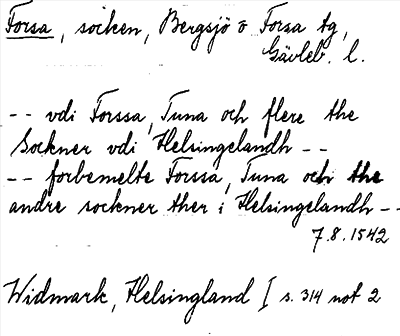 Forsa, socken, Bergsjö o Forsa tg,
Gävleb. l.
-- vdi Forssa, Tuna och flere the
Sockner vdi Helsingelandh --
-- forbemelte Forssa, Tuna och the
andre sockner ther i Helsingelandh --
7.8.1542
Widmark, Helsingland I s. 314 not 2